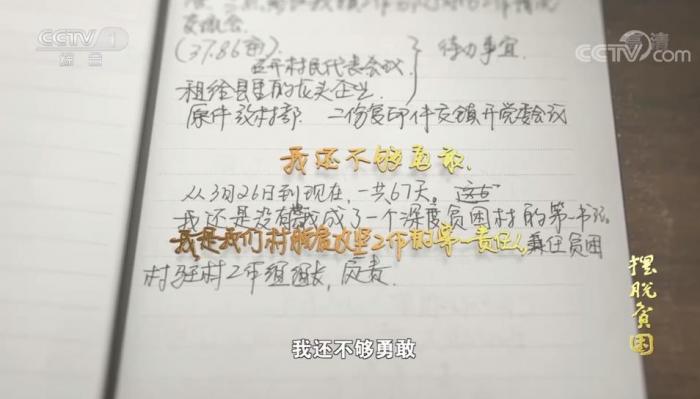 CCTV 1
综合
CCTV.com
高清
交流会
(37.86亩).
召开村民代表会议.
待办事宜.
租给县里的龙头企业.
原件放村部. 二份复印件交镇开党委会议
我还不够勇敢.
从3月26日到现在, 一共67天,
我还是没有 成了一个深度贫困村的第一书记.
我是我们村脱贫攻坚工作的第一责任人, 兼任贫困
村驻村工作组组长, 负责.
摆脱贫困
我还不够勇敢